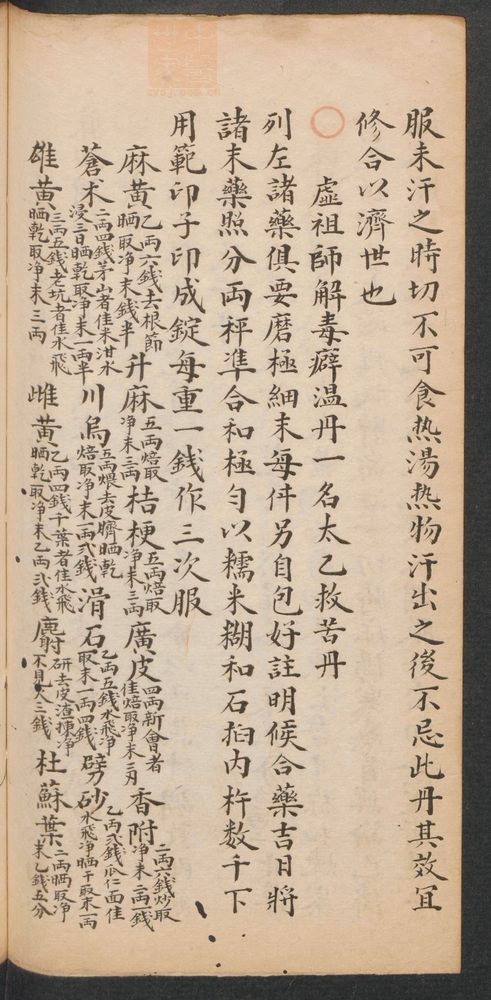 服未汗之時切不可食热湯热物汗出之後不忌此丹其效冝
修合以濟世也
○虛祖師解毒癖溫丹一名太乙救苦丹
列左諸藥俱要磨極細末每件另自包好註明候合藥吉日將
諸末藥照分両秤準合和極勻以糯米糊和石臼内杵数千下
用範印子印成錠每重一錢作三次服
麻黄乙両六錢去根節晒取净末錢半升麻五両焙取净末三両桔梗五両焙取净末三両廣皮四両新會者佳焙取净末三両香附二両六錢炒取净末二両一錢
蒼术二両四錢茅山者佳米泔水浸三日晒乾取净末一両半川烏五両煨去皮臍晒乾焙取净末一両弍錢滑石乙両五錢水飛净取末一両四錢劈砂乙両弍錢瓜仁面佳水飛净晒干取末一両
雄黄三両五錢老坑者佳水飛晒乾取净末三両雌黄乙両四錢千葉者佳水飛晒乾取净末乙両弍錢麝研去皮渣揀净不見火三錢杜蘇葉二両晒取净末乙錢五分